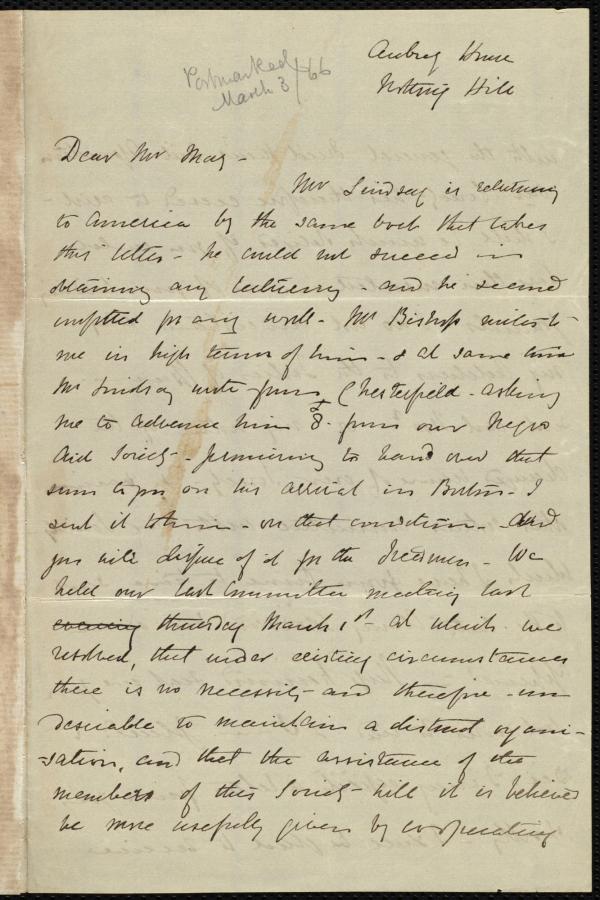 Aubrey House
Notting Hill
Postmarked
March 3/66
Dear Mr May -
Mr Lindsay is returning
to America by the same boat that takes
this letter - he could not succeed in
obtaining any lecturing - and he seemed
unfitted for any work - Mr Bishop writes to
me in high terms of him - & at same time
Mr Lindsay wrote from Chesterfield - asking
me to advance him £8 - from our Negro
Aid Society - promising to hand over that
sum to you on his arrival in Boston - I
sent it to him - on that condition - And
you will dispose of it for the Freedmen - We
held our last Committee meeting last
evening thursday March 1st - at which we
resolved, that under existing circumstances
there is no necessity - and therefore - un
desirable to maintain a distinct organi-
-sation, and that the assistance of the
members of this Society - will it is believed
be more usefully given by cooperating